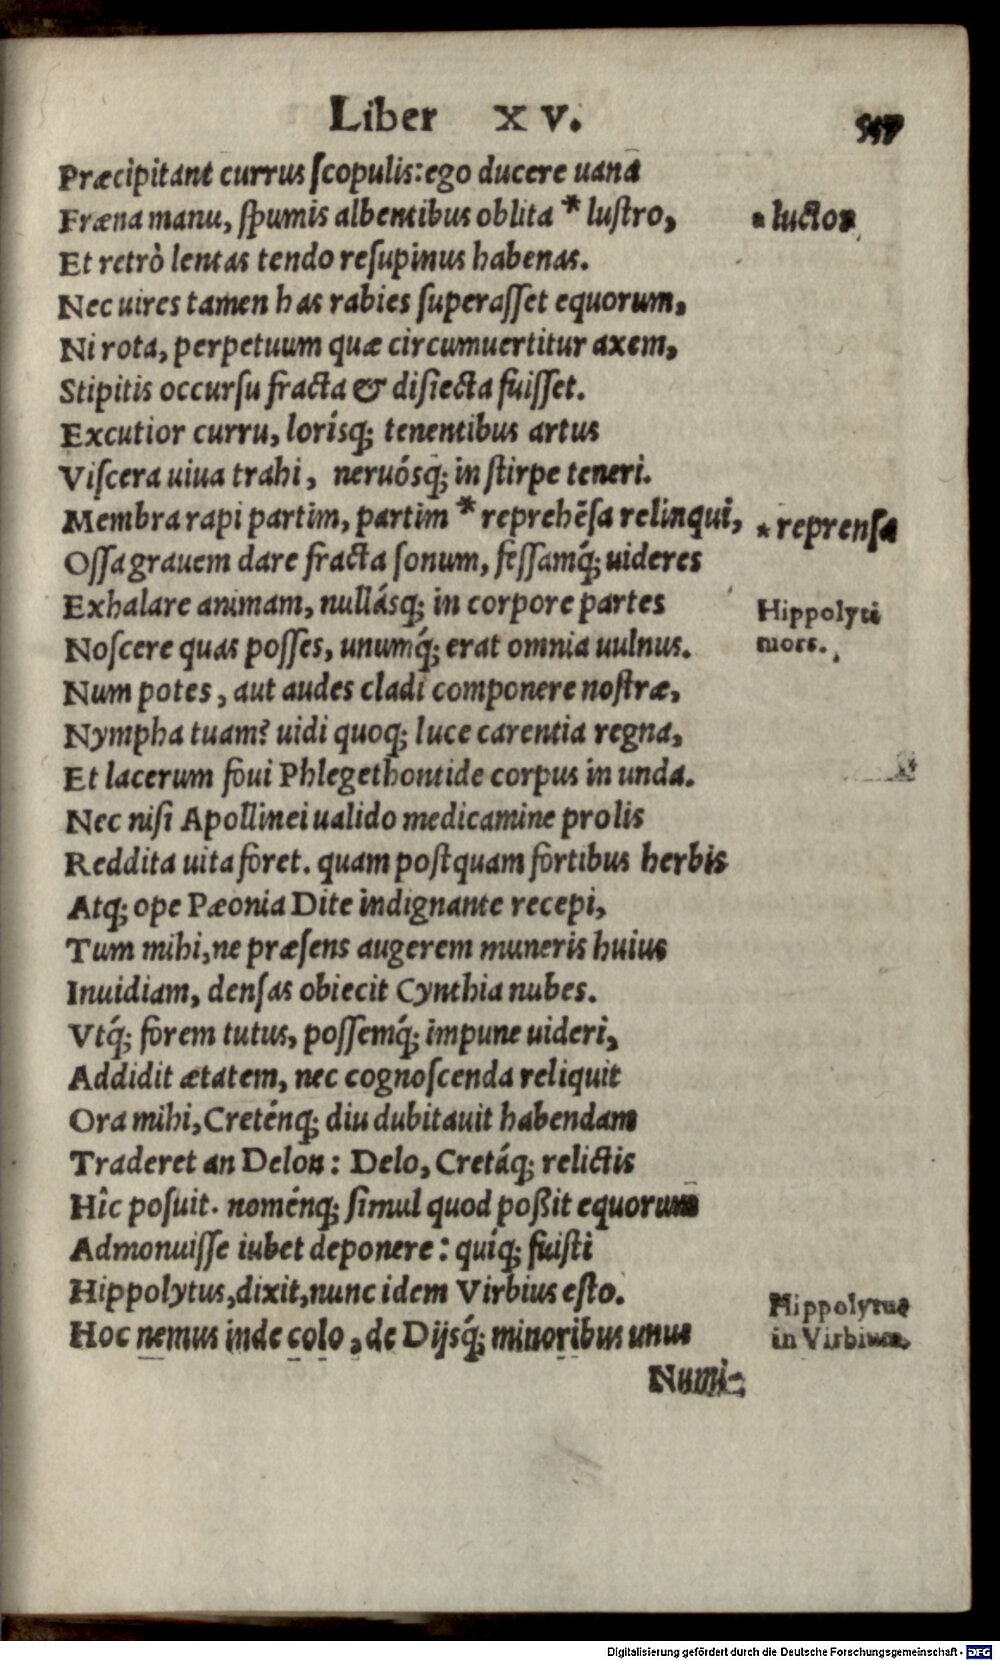 Liber XV.
Præcipitant currus ſcopulis: ego ducere uana
Fræna manu, ſpumis albentibus oblita * luſtro,
* luctor
Et retrò lentas tendo reſupinus habenas.
Nec uires tamen has rabies ſuperaſſet equorum,
Ni rota, perpetuum quæ circumuertitur axem,
Stipitis occurſu fracta & diſiecta fuiſſet.
Excutior curru, lorísq; tenentibus artus
Viſcera uiua trahi, neruósq; in ſtirpe teneri.
Membra rapi partim, partim * reprehẽſa relinqui,
* reprenſa
Oſſa grauem dare fracta ſonum, feſſamq́; uideres
Exhalare animam, nullásq; in corpore partes
Hippolyti
Noſcere quas poſſes, unumq́; erat omnia uulnus.
mors.
Num potes, aut audes cladi componere noſtræ,
Nympha tuam? uidi quoq; luce carentia regna,
Et lacerum foui Phlegethontide corpus in unda.
Nec niſi Apollinei ualido medicamine prolis
Reddita uita foret. quam poſtquam fortibus herbis
Atq; ope Pæonia Dite indignante recepi,
Tum mihi, ne præſens augerem muneris huius
Inuidiam, denſas obiecit Cynthia nubes.
Vtq́; forem tutus, poſſemq́; impune uideri,
Addidit ætatem, nec cognoſcenda reliquit
Ora mihi, Creténq; diu dubitauit habendam
Traderet an Delon: Delo, Cretáq; relictis
Hîc poſuit. noménq; ſimul quod poßit equorum
Admonuiſſe iubet deponere: quíq; fuiſti
Hippolytus, dixit, nunc idem Virbius eſto.
Hippolytus
Hoc nemus inde colo, de Dijsq́; minoribus unus
in Virbium.
Numi-
Digitalisierung gefördert durch die Deutsche Forschungsgemeinschaft - DFG